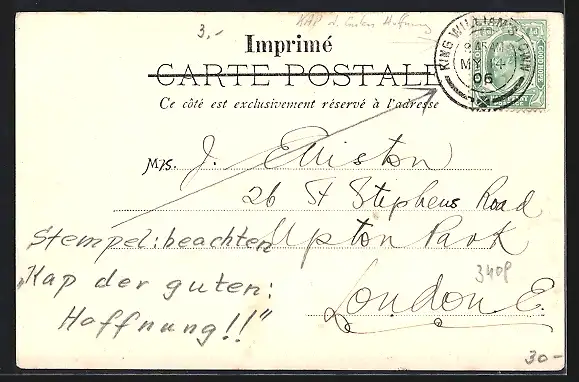 3,-
KAP d. Guten Hoffnung
Imprimé
CARTE POSTALE
Ce côté est exclusivement réservé à l'adresse
KING WILLIAM'S TOWN
MY 14
06
POSTAGE
Mrs. J. Elliston
26 St Stephens Road
Upton Park
London E.
Stempel: beachten
„Kap der guten:
Hoffnung!!"
3409
30-